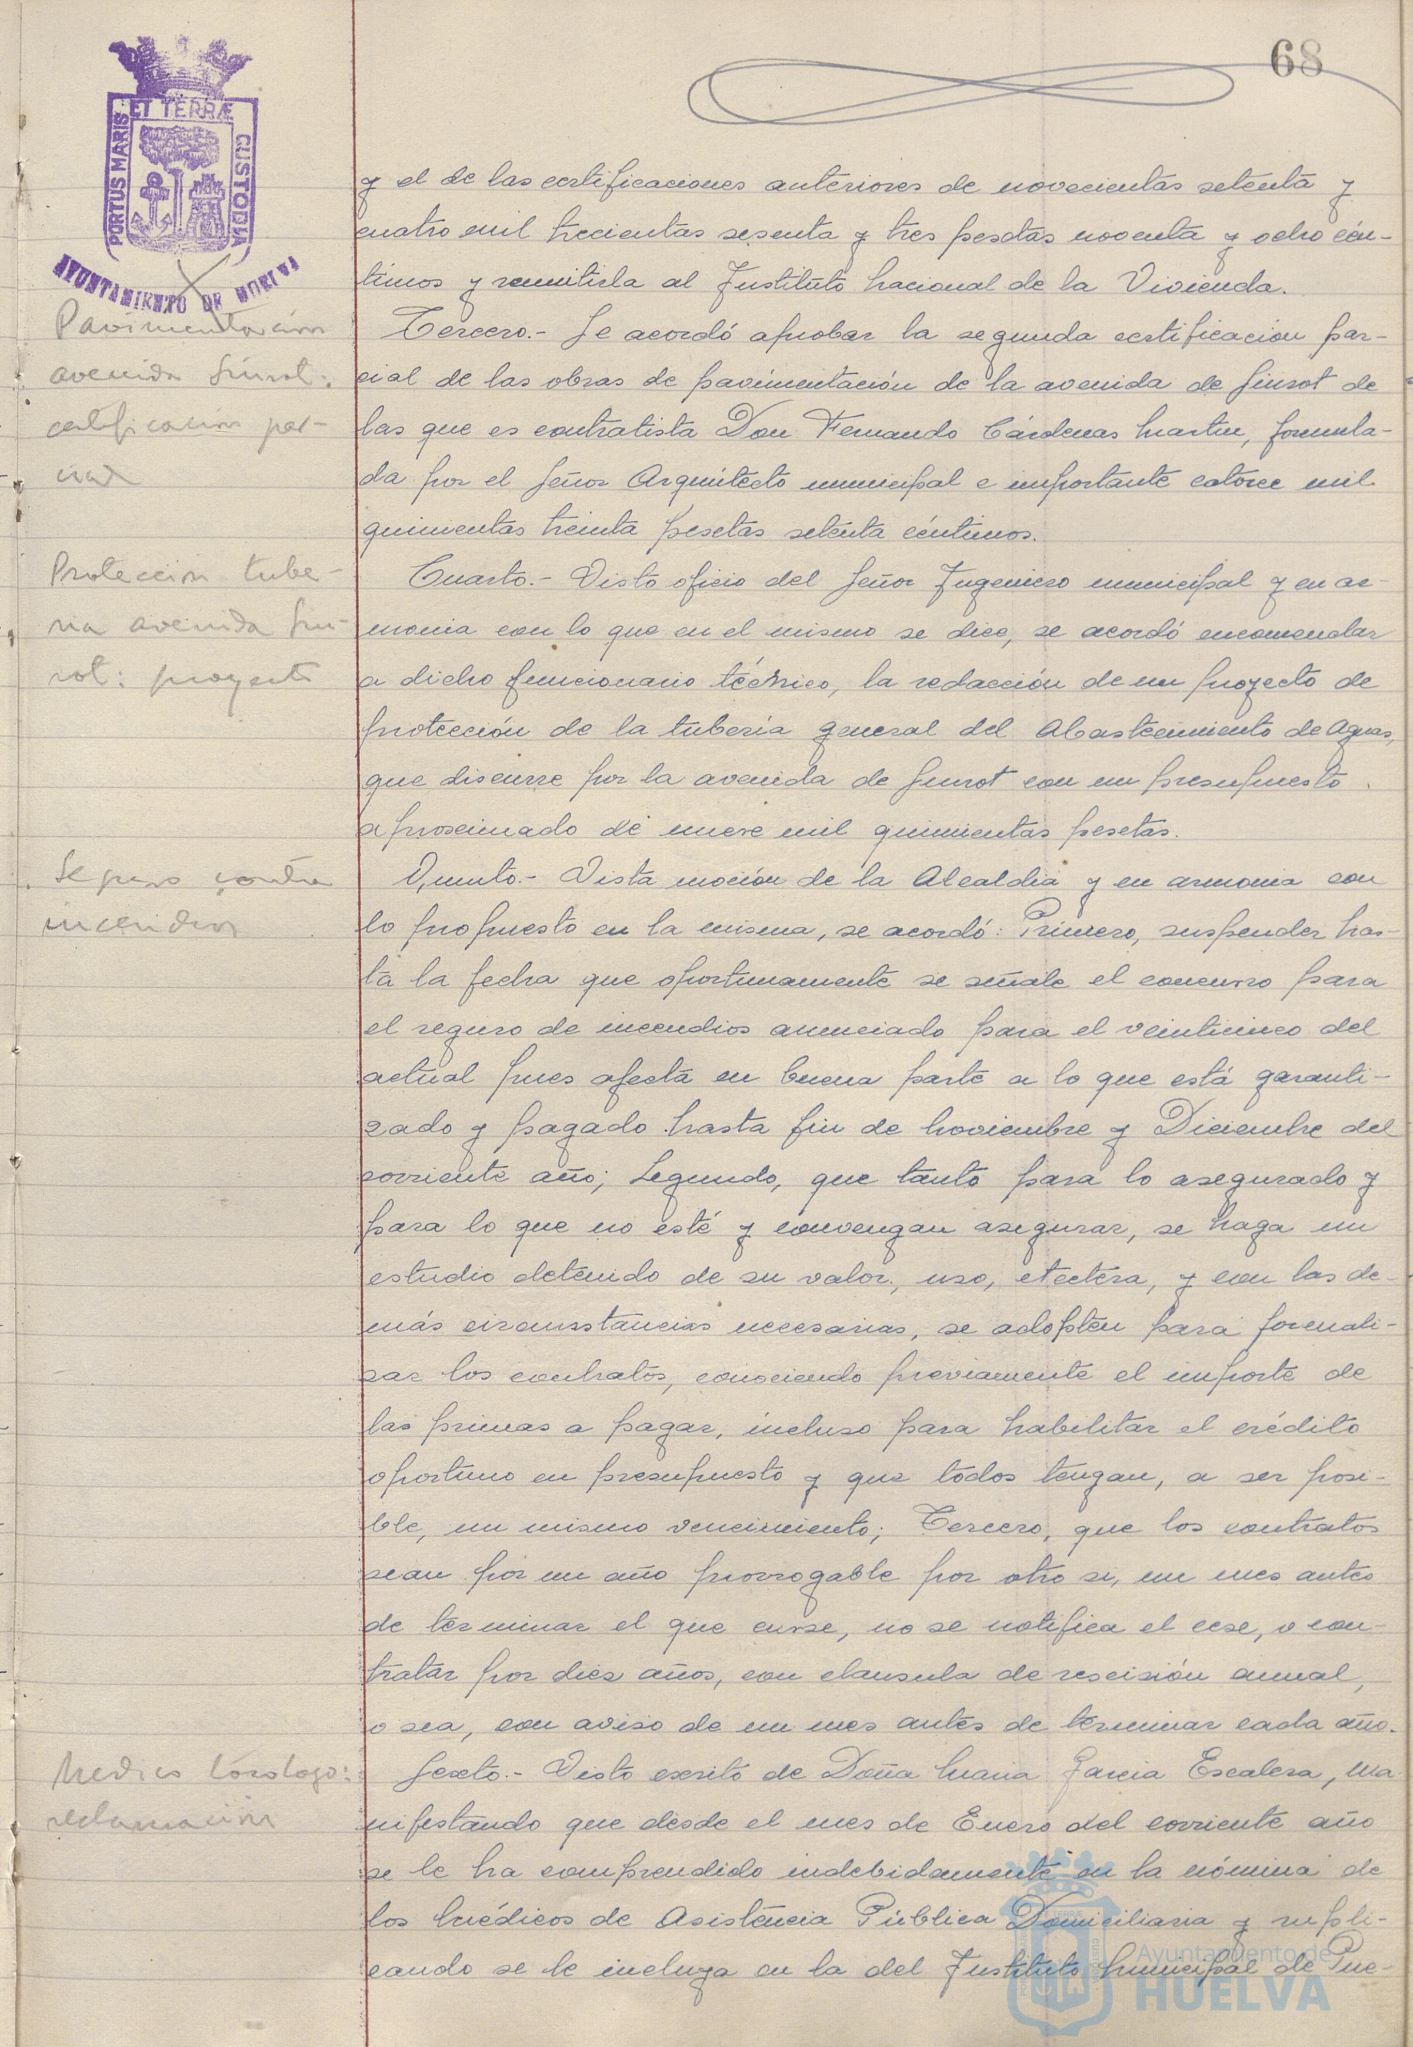 68
PORTUS MARIS ET TERRÆ CUSTODIA
AYUNTAMIENTO DE HUELVA
y el de las certificaciones anteriores de novecientas setenta y
cuatro mil trecientas sesenta y tres pesetas noventa y ocho cén-
timos y remitirla al Instituto Nacional de la Vivienda.
Pavimentación
avenida Guirot:
certificación par-
cial
Tercero.- Se acordó aprobar la segunda certificación par-
cial de las obras de pavimentación de la avenida de Guirot de
las que es contratista Don Fernando Cárdenas Martin, formula-
da por el Señor Arquitecto municipal e importante catorce mil
quinientas treinta pesetas setenta céntimos.
Protección tube-
ria avenida Gui-
rot: proyecto
Cuarto.- Visto oficio del Señor Ingeniero municipal y en ar-
monia con lo que en el mismo se dice, se acordó encomendar
a dicho funcionario técnico, la redacción de un proyecto de
protección de la tuberia general del Abastecimiento de Aguas,
que discurre por la avenida de Guirot con un presupuesto
aproximado de nueve mil quinientas pesetas.
Seguro contra
incendios
Quinto.- Vista moción de la Alcaldia y en armonia con
lo propuesto en la misma, se acordó: Primero, suspender has-
ta la fecha que oportunamente se señale el concurso para
el seguro de incendios anunciado para el veinticinco del
actual pues afecta en buena parte a lo que está garanti-
zado y pagado hasta fin de Noviembre y Diciembre del
corriente año; Segundo, que tanto para lo asegurado y
para lo que no esté y convengan asegurar, se haga un
estudio detenido de su valor, uso, etectera, y con las de-
más circunstancias necesarias, se adopten para formali-
zar los contratos, conociendo previamente el importe de
las primas a pagar, incluso para habilitar el crédito
oportuno en presupuesto y que todos tengan, a ser posi-
ble, un mismo vencimiento; Tercero, que los contratos
sean por un año prorrogable por otro si, un mes antes
de terminar el que curse, no se notifica el cese, o con-
tratar por diez años, con clausula de rescisión anual,
o sea, con aviso de un mes antes de terminar cada año.
Medico Tocologo:
reclamación
Sexto.- Visto escrito de Doña Maria Garcia Escalera, ma
nifestando que desde el mes de Enero del corriente año
se le ha comprendido indebidamente en la nómina de
los Médicos de Asistencia Pública Domiciliaria y supli-
cando se le incluya en la del Instituto Municipal de Pue-
Ayuntamiento de
HUELVA